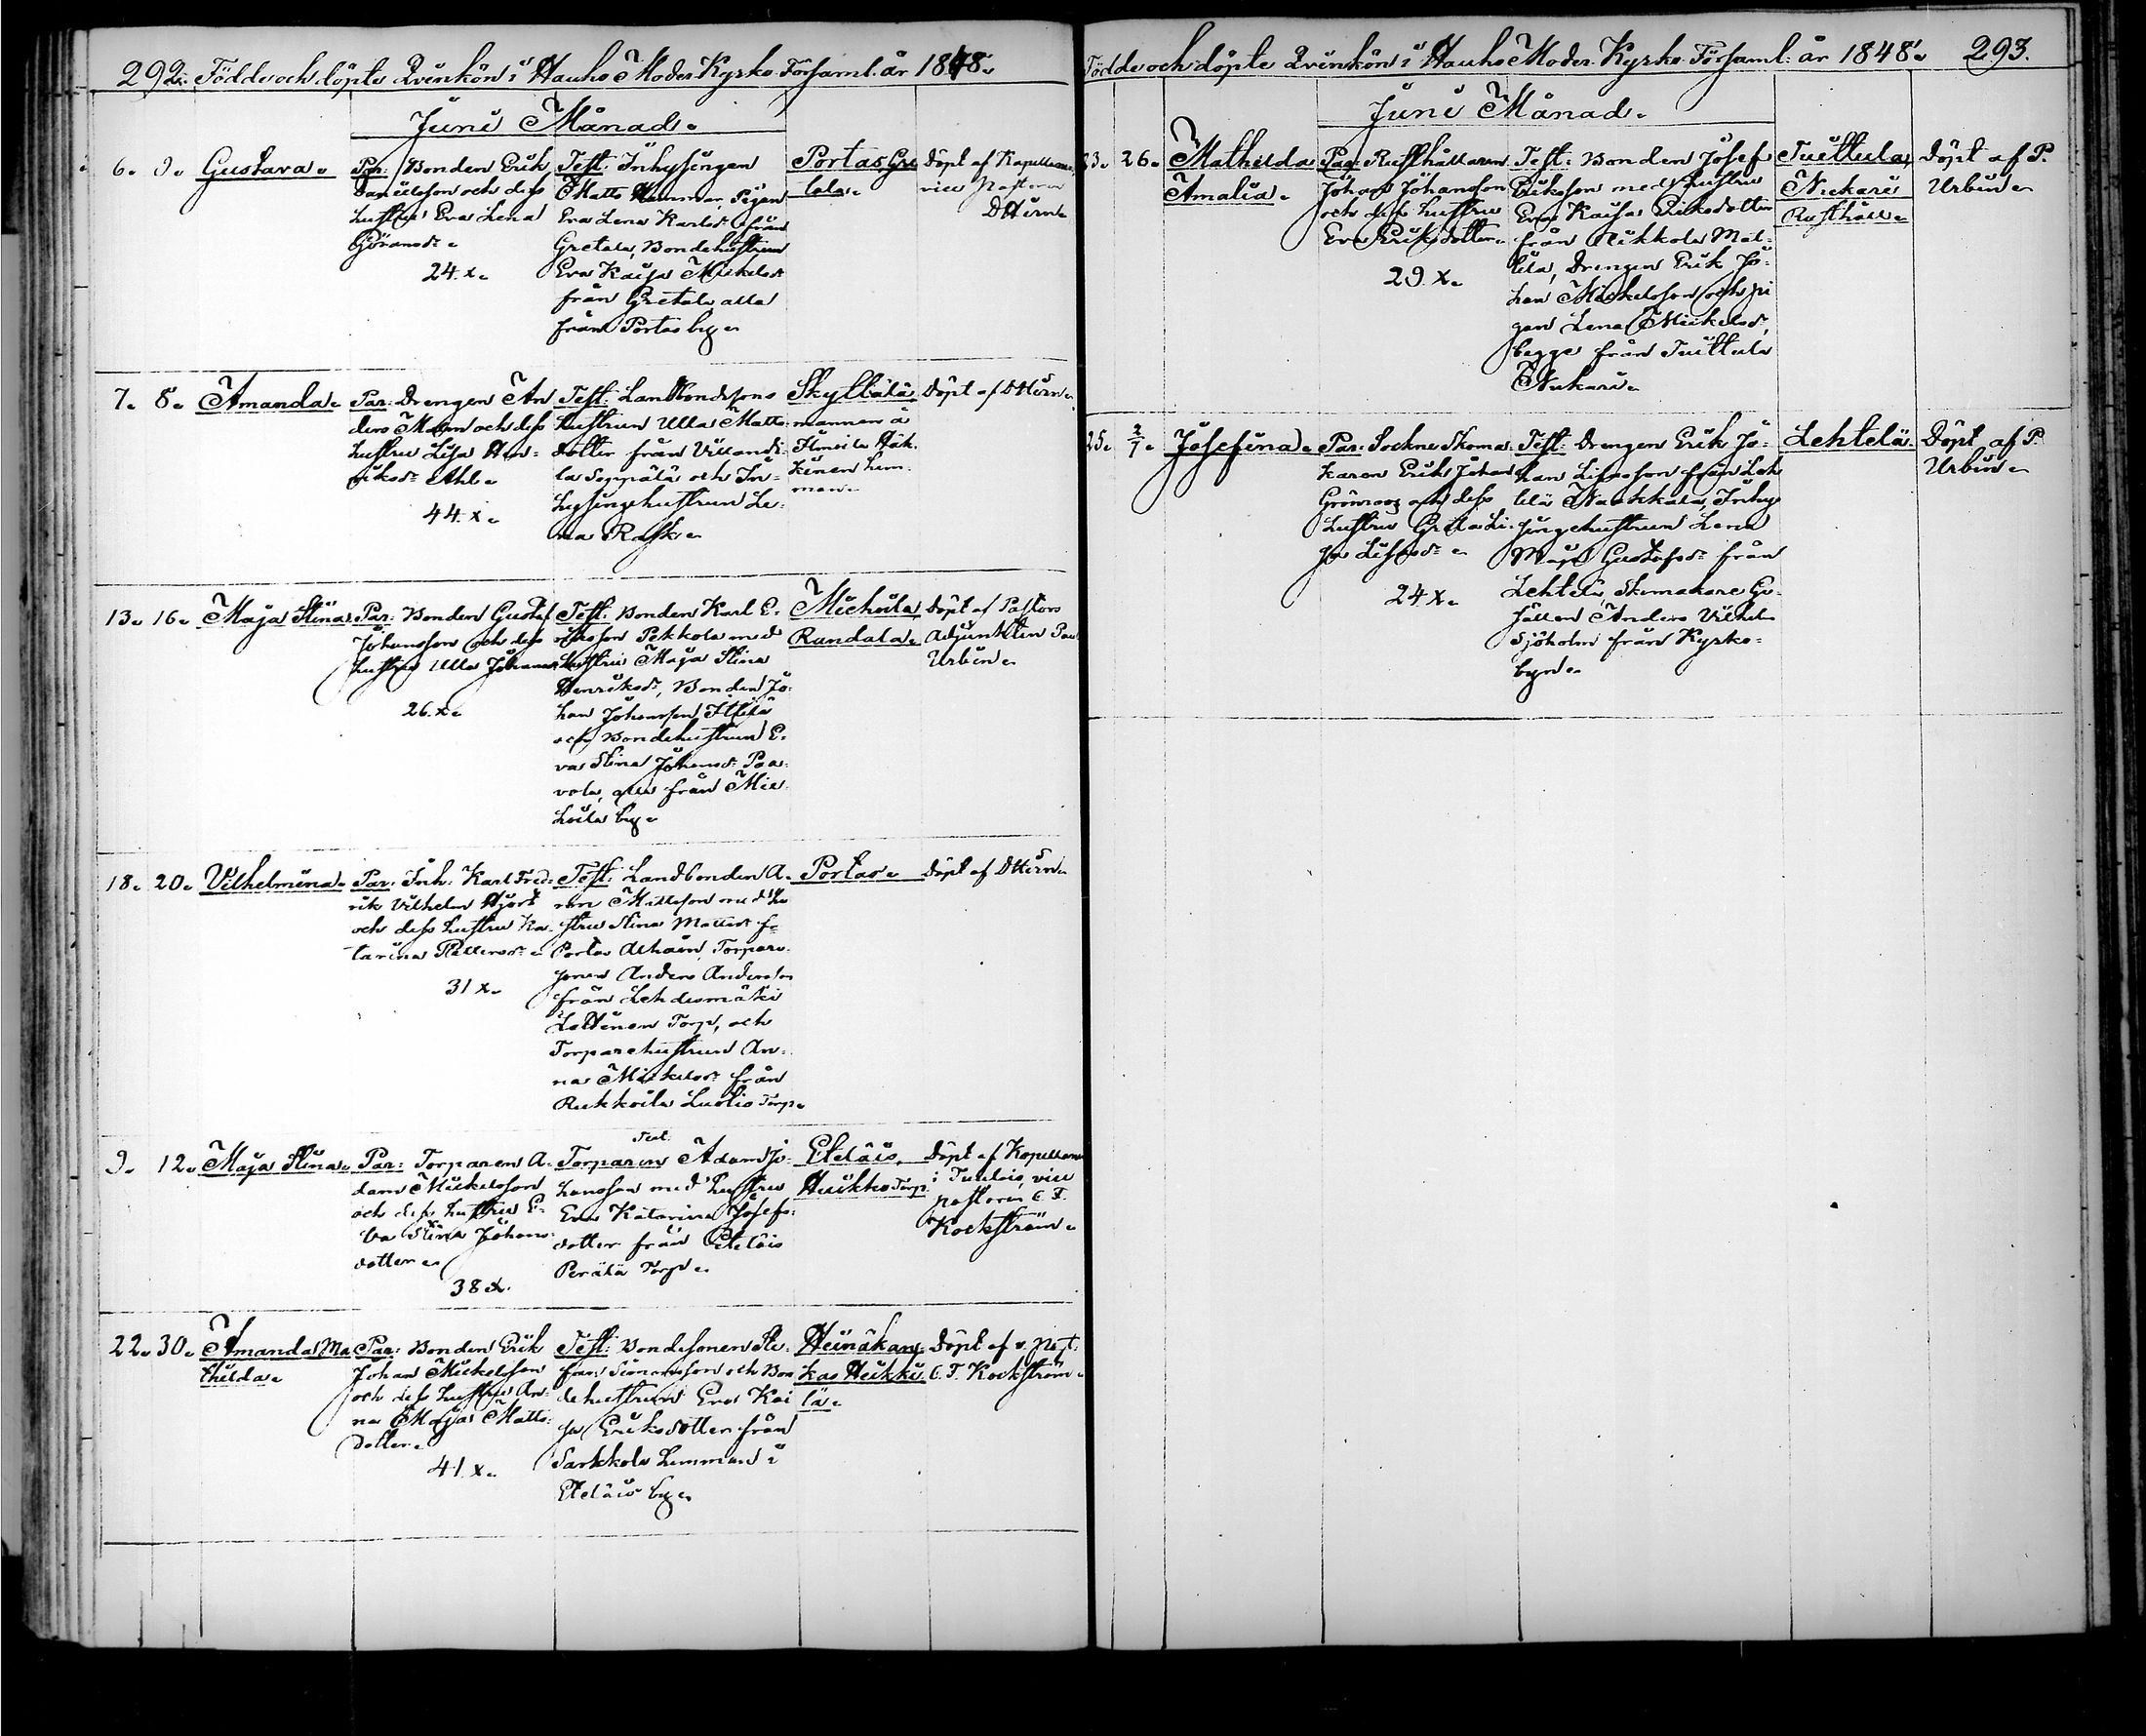 292. Födde och döpte Qvinkön i Hauho Moder Kyrko Församl. år 1848.
Juni Månad.
6. 9. Gustava. Par: Bonden Erik
Danielsson och dess
hustru Eva Lena
Göransdr.
24. x.
Test: Inhysingen
Matts Hammar, Pigan
Eva Lena Karlsdr från
Gretala, Bondehustrun
Eva Kaisa Mickelsdr
från Gretala alla
från Portas by.
Portas, Gre
tala.
Döpt af Kapellanen,
vice Pastoren
D Hirn.
7. 8. Amanda. Par: Drengen An
ders Malm och dess
hustru Lisa Hen-
riksdr Ahl.
44. x.
Test: Landbondesons
hustrun Ulla Matts
dotter från Villandi
la Seppälä och In-
hysingehustrun Le-
na Rask.
Skyttälä
mannen å
Ilmoila Häk.
kinen hem-
man.
Döpt af D Hirn.
13. 16. Maja Stina. Par: Bonden Gustaf
Johansson och dess
hustru Ulla Johansdr
26. x.
Test: Bonden Karl E-
riksson Pekkola med
hustru Maja Stina
Henriksdr, Bonden Jo-
han Johansson Ittilä
och Bondehustrun E-
va Stina Johansdr Paa-
vola, alla från Mie-
hoila by.
Miehoila,
Randala.
Döpt af Pastors
Adjunkten Paul
Urbin.
18. 20. Vilhelmina. Par: Inh: Karl Fred-
rik Vilhelm Hjort
och dess hustru Ka-
tarina Pettersdr.
31 x.
Test: Landbonden A-
ron Mattsson med hu
stru Stina Mattsdr fr
Portas Alhain, Torpare-
sonen Anders Andersson
från Lehdesmäki
Torp, och
Torparehustrun An-
na Mickelsdr från
Rukkoila Luolis Torp.
Portas.
Döpt af D Hirn.
9. 12. Maja Stina. Par: Torparen A-
dam Mickelsson
och dess hustru E-
va Stina Johans-
dotter.
38 x.
Test.
Torparen Adam Jo-
hansson med hustru
Eva Katarina Josefs-
dotter från Eteläis
Perälä Torp.
Eteläis,
Huikko Torp.
Döpt af Kapellanen
i Tuulois, vice
pastoren C. F.
Kockström.
22. 30. Amanda Ma
thilda.
Par: Bonden Erik
Johan Mickelsson
och dess hustru An-
na Maja Matts-
dotter.
41. x.
Test: Bondesonen Ste-
fan Simonsson och Bon
dehustrun Eva Kai
sa Eriksdotter från
Sarkkola hemman i
Eteläis by.
Heinäkan-
kas Heikki
lä.
Döpt af v. past.
C. F. Kockström.
Födde och döpte Qvinkön i Hauho Moder Kyrko Församl: år 1848. 293.
Juni Månad.
23. 26. Mathilda
Amalia.
Par: Rusthållaren
Johan Johansson
och dess hustru
Eva Eriksdotter.
29. x.
Test: Bonden Josef
Eriksson med hustru
Eva Kaisa Eriksdotter
från Nikkola Mat-
tila, Drengen Erik Jo-
han Mickelsson och pi
gan Lena Mickelsdr,
begge från Tuittula
Nukari.
Tuittula,
Nukari
Rusthåll.
Döpt af P.
Urbin.
25. 2/7. Josefina. Par: Sockne Skoma-
karen Erik Johan
Grönroos och dess
hustru Greta Li-
sa Lisasdr.
24 x.
Test: Drengen Erik Jo-
han Lisasson från Leh
telä Naukkala, Inhy
singehustrun Lena
Maja Gustafsdr från
Lehtelä, Skomakare Ge-
sällen Anders Vilhelm
Sjöholm från Kyrko-
byn.
Lehtelä.
Döpt af P.
Urbin.